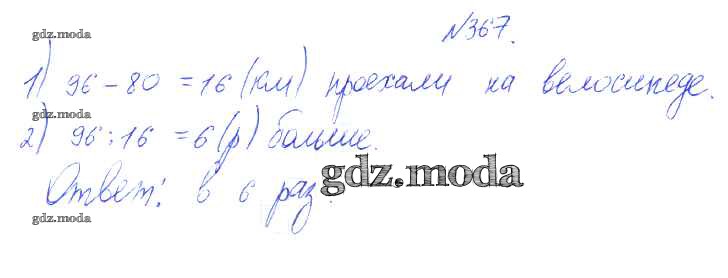 №367.
gdz.moda
1) 96 - 80 = 16 (км) проехали на велосипеде.
gdz.moda
2) 96 : 16 = 6 (р) больше.
gdz.moda
Ответ: в 6 раз.
gdz.moda